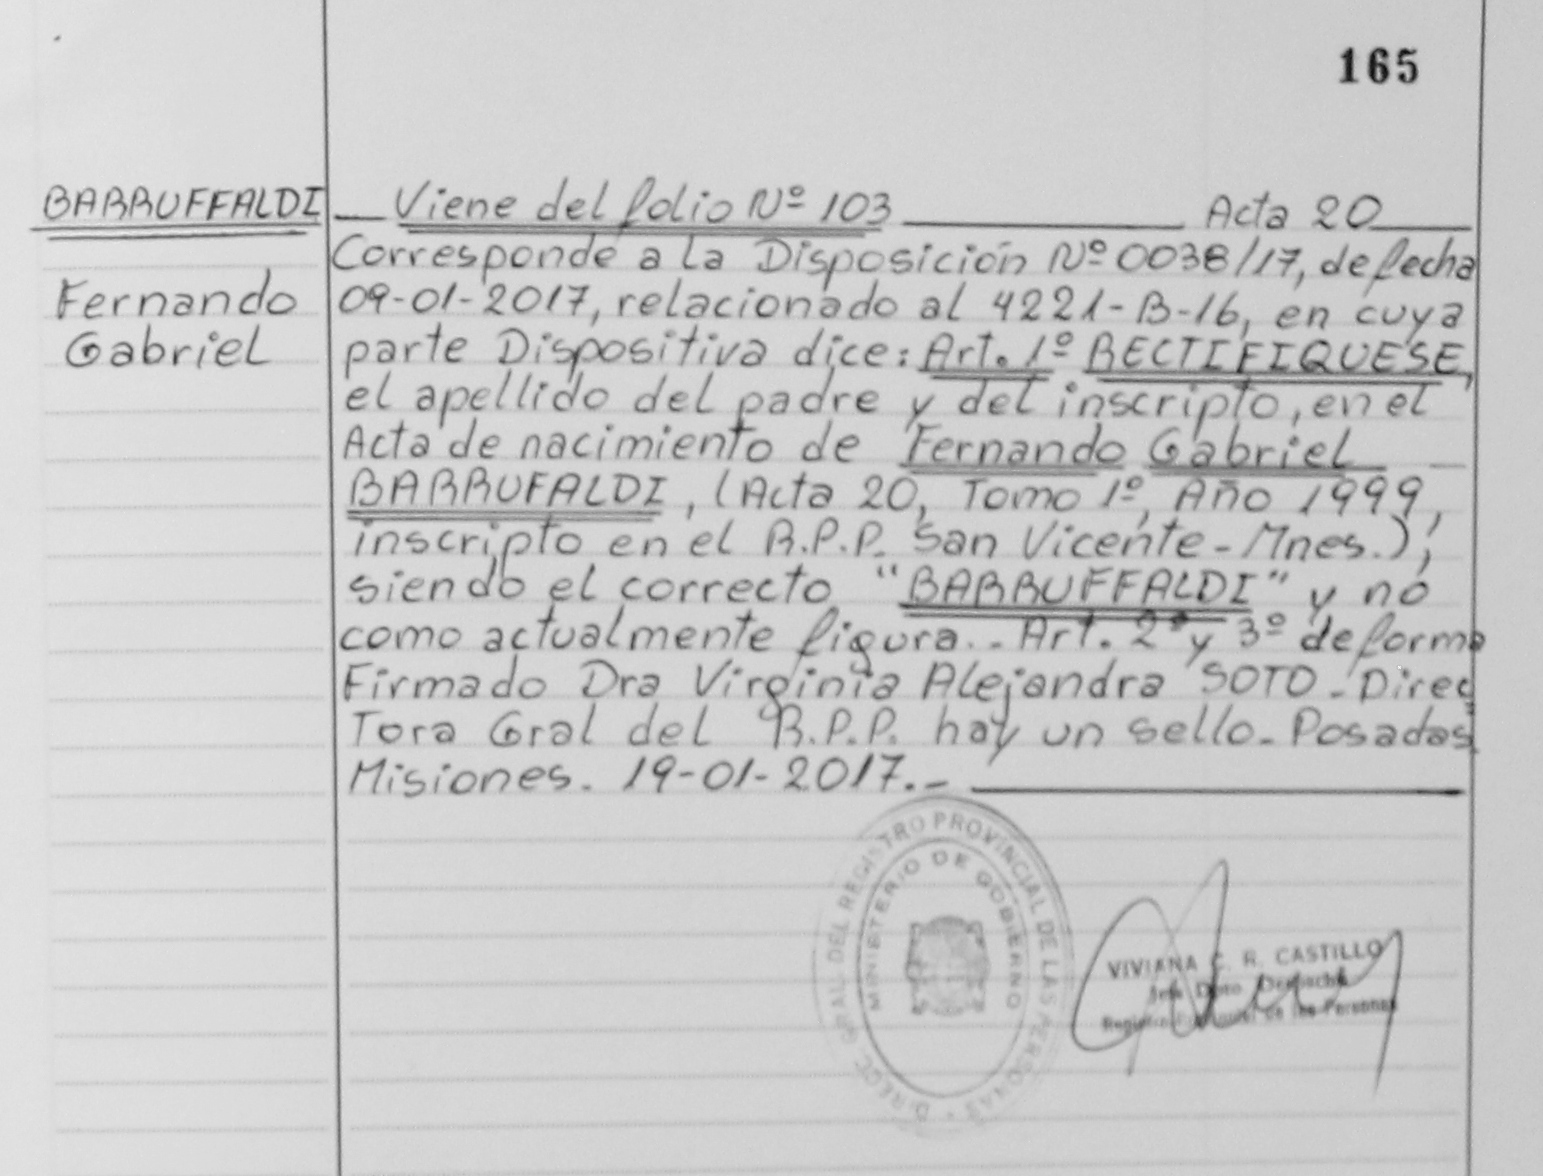 165
BARRUFFALDI
Fernando
Gabriel
Viene del folio Nº 103 Acta 20
Corresponde a la Disposición Nº 0038/17, de fecha
09-01-2017, relacionado al 4221-B-16, en cuya
parte Dispositiva dice: Art. 1º RECTIFIQUESE,
el apellido del padre y del inscripto, en el
Acta de nacimiento de Fernando Gabriel
BARRUFALDI, (Acta 20, Tomo 1º, Año 1999,
inscripto en el R.P.P. San Vicente-Mnes.);
siendo el correcto "BARRUFFALDI" y no
como actualmente figura.. Art. 2º y 3º de forma
Firmado Dra Virginia Alejandra SOTO - Direc
Tora Gral del R.P.P. hay un sello. Posadas
Misiones. 19-01-2017.-
DIRECC. GRAL DEL REGISTRO PROVINCIAL DE LAS PERSONAS
MINISTERIO DE GOBIERNO
VIVIANA R. CASTILLO
Jefa Dpto Despacho
de las Personas